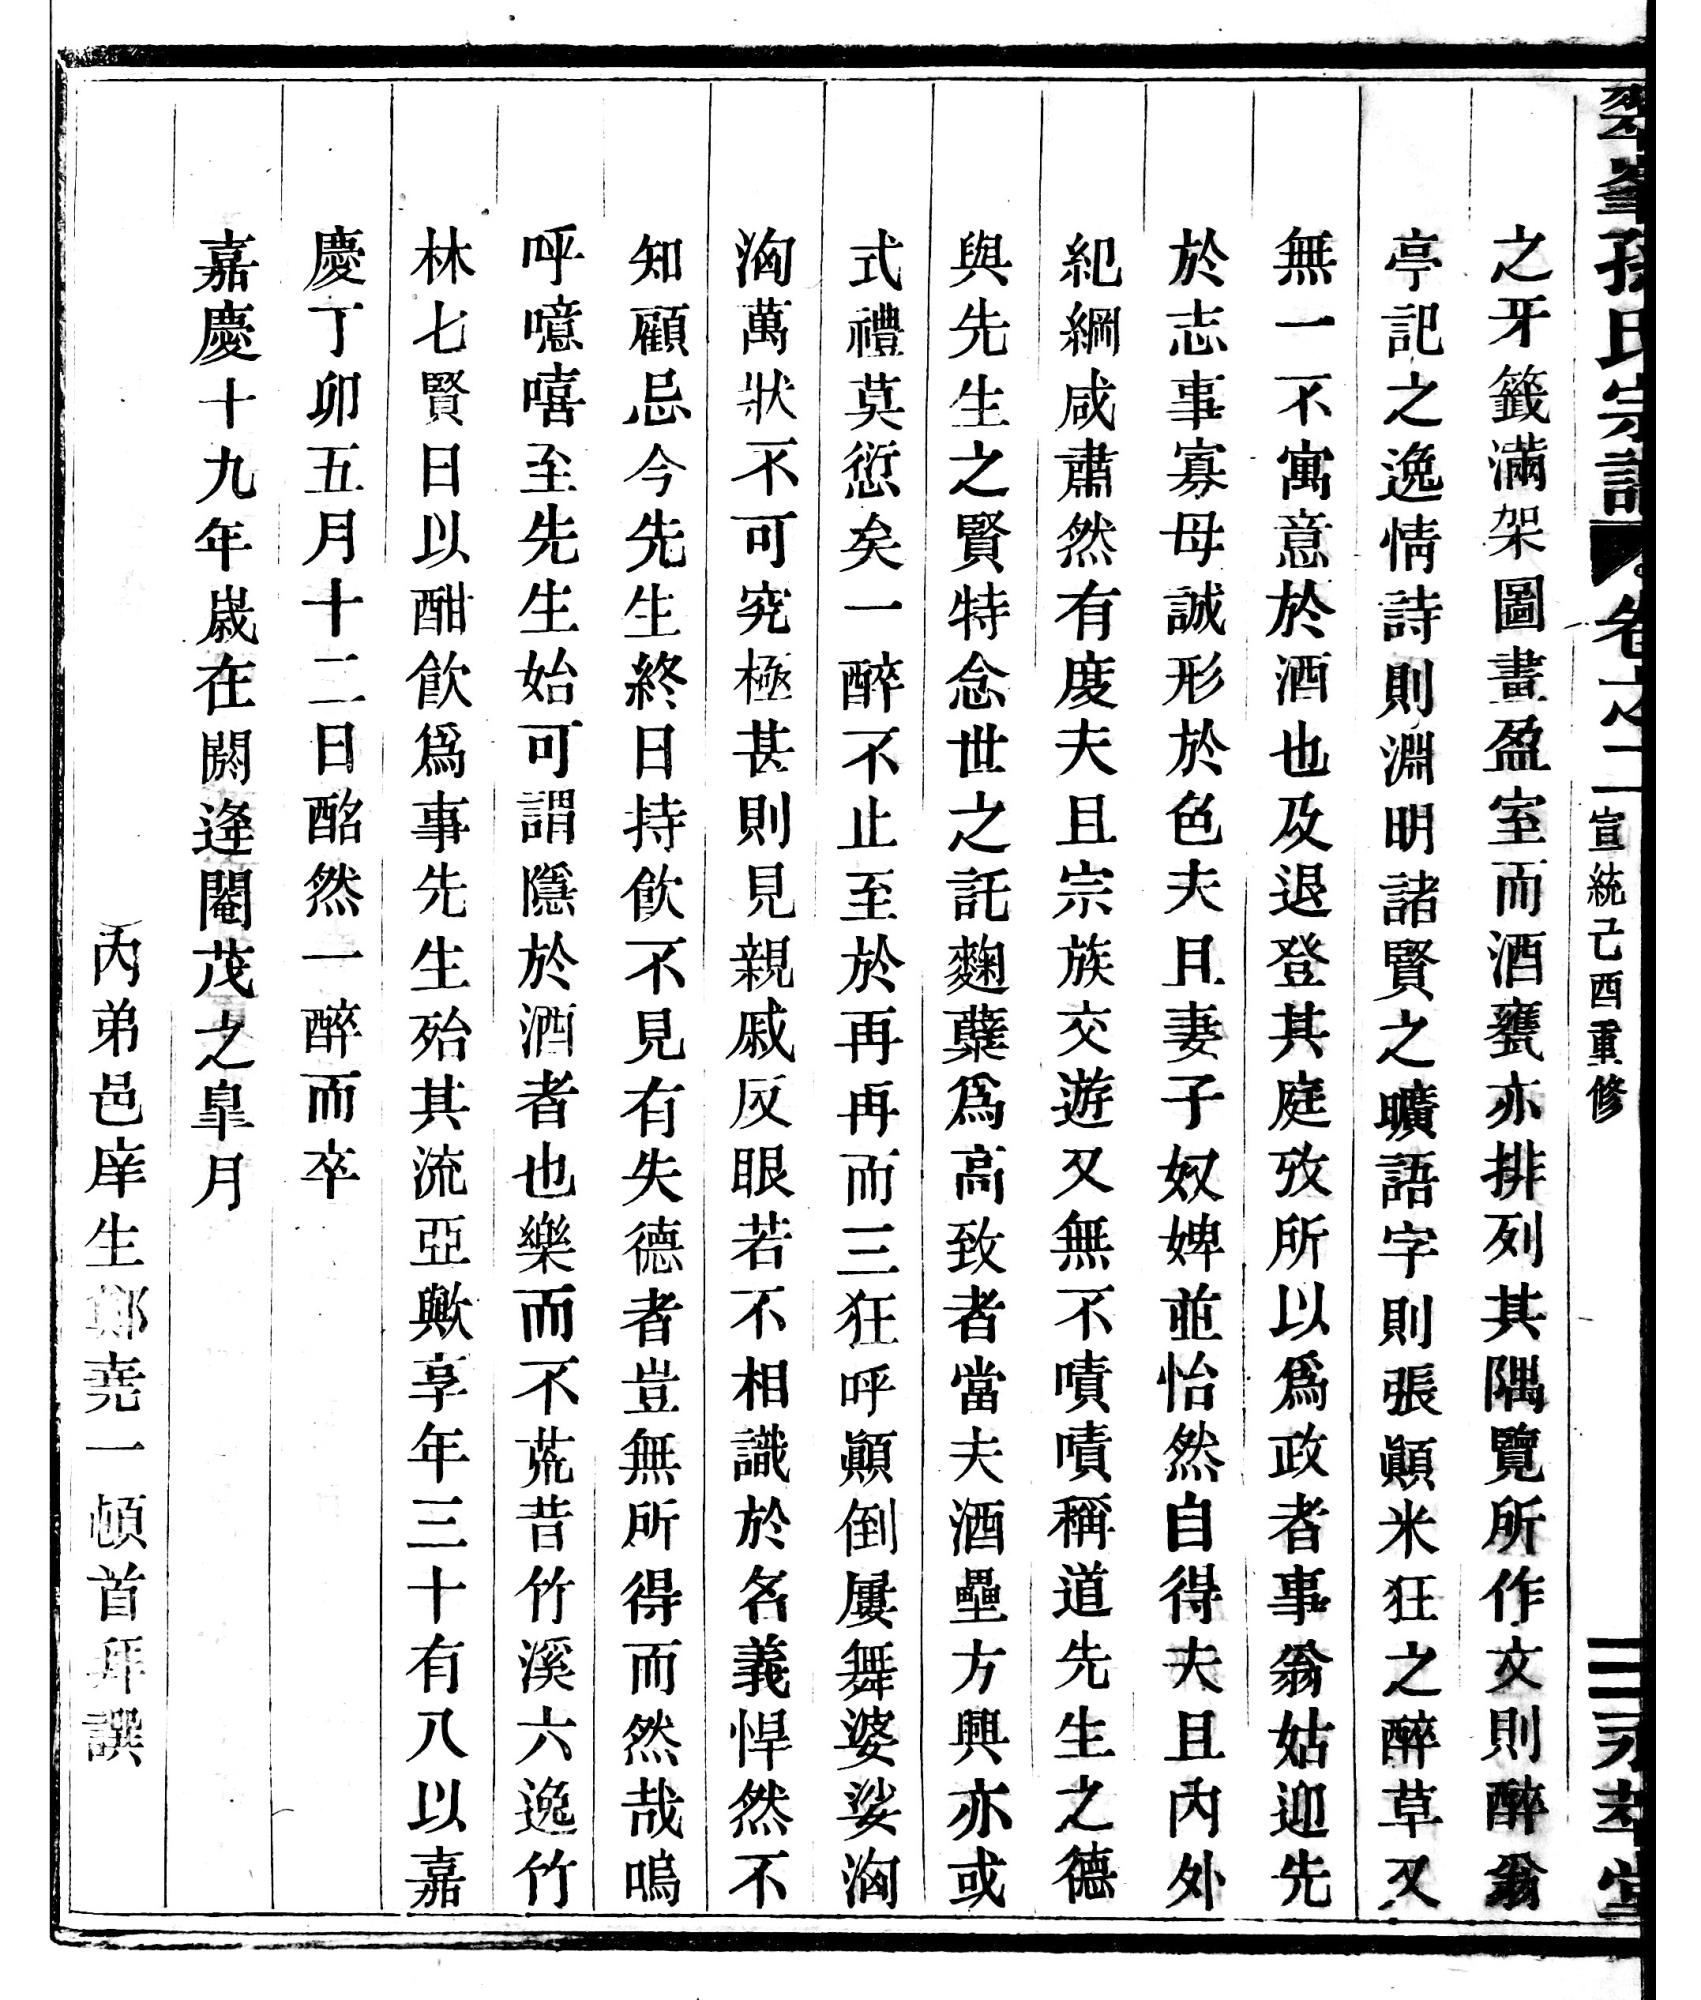 翠峯孫氏宗譜 卷之二 宣統己酉重修 三 永萃堂
之牙籤滿架圖畫盈室而酒甕亦排列其隅覽所作文則醉翁
亭記之逸情詩則淵明諸賢之曠語字則張顛米狂之醉草又
無一不寓意於酒也及退登其庭攷所以爲政者事翁姑迎先
於志事寡母誠形於色夫且妻子奴婢並怡然自得夫且內外
紀綱咸肅然有度夫且宗族交遊又無不嘖嘖稱道先生之德
與先生之賢特念世之託麴糵爲高致者當夫酒壘方興亦或
式禮莫愆矣一醉不止至於再再而三狂呼顛倒屢舞婆娑洶
洶萬狀不可究極甚則見親戚反眼若不相識於名義悍然不
知顧忌今先生終日持飲不見有失德者豈無所得而然哉嗚
呼噫嘻至先生始可謂隱於酒者也樂而不荒昔竹溪六逸竹
林七賢日以酣飲爲事先生殆其流亞歟享年三十有八以嘉
慶丁卯五月十二日酩然一醉而卒
嘉慶十九年歲在閼逢閹茂之皐月
內弟邑庠生鄭堯一頓首拜譔